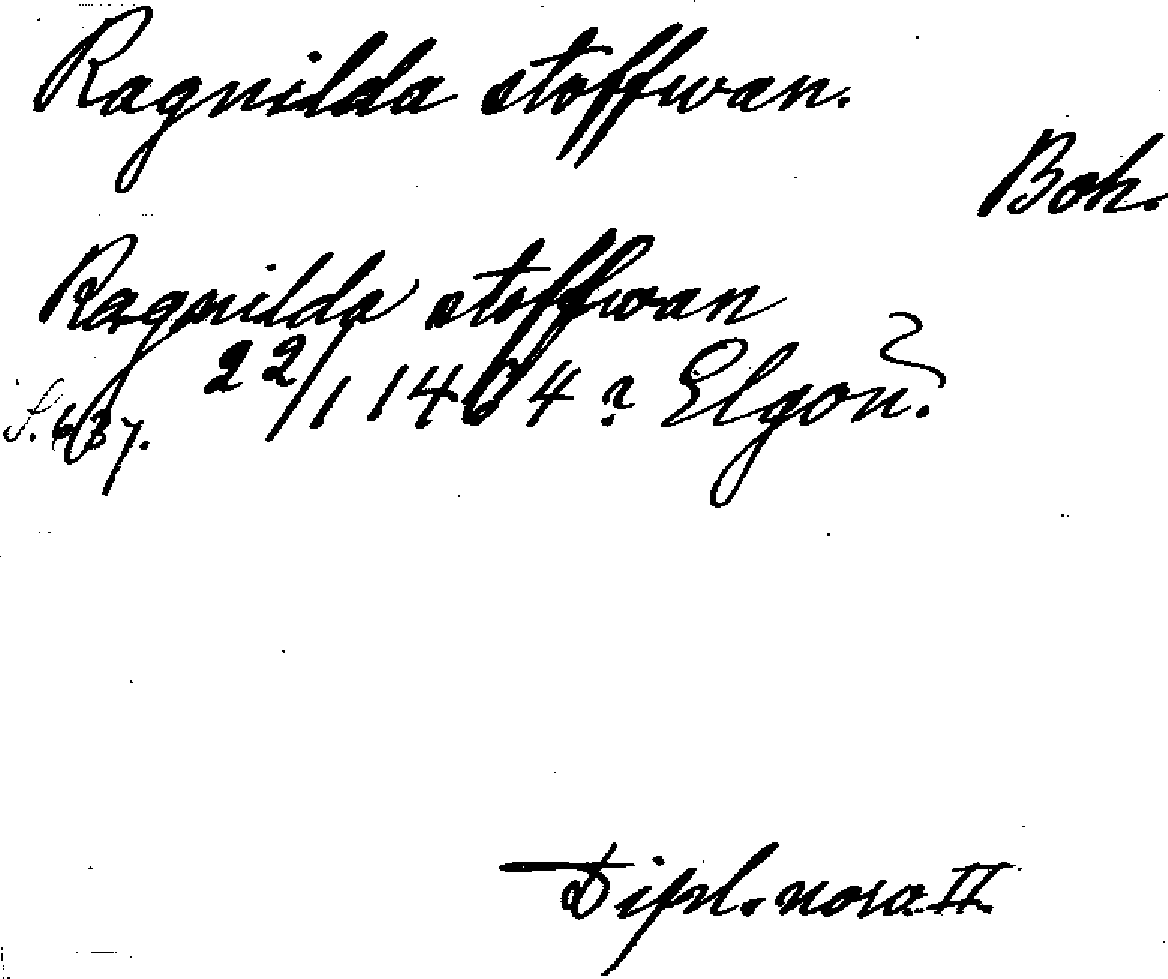 Ragnilda stoffwan.
Boh.
Ragnilda stoffwan
22/1 1464? Elgon?.
S. 637.
Dipl. nora II.